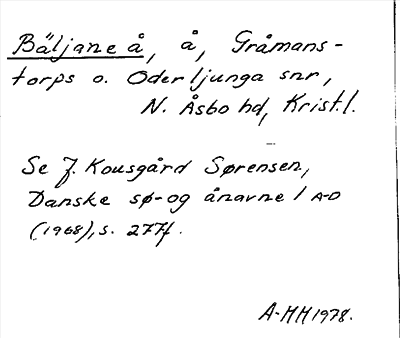 Bäljane å, å, Gråmans-
torps o. Oderljunga snr,
N. Åsbo hd, Krist.l.
Se J. Kousgård Sørensen,
Danske sø- og ånavne 1 A-D
(1968), s. 277f.
A-HH 1978.